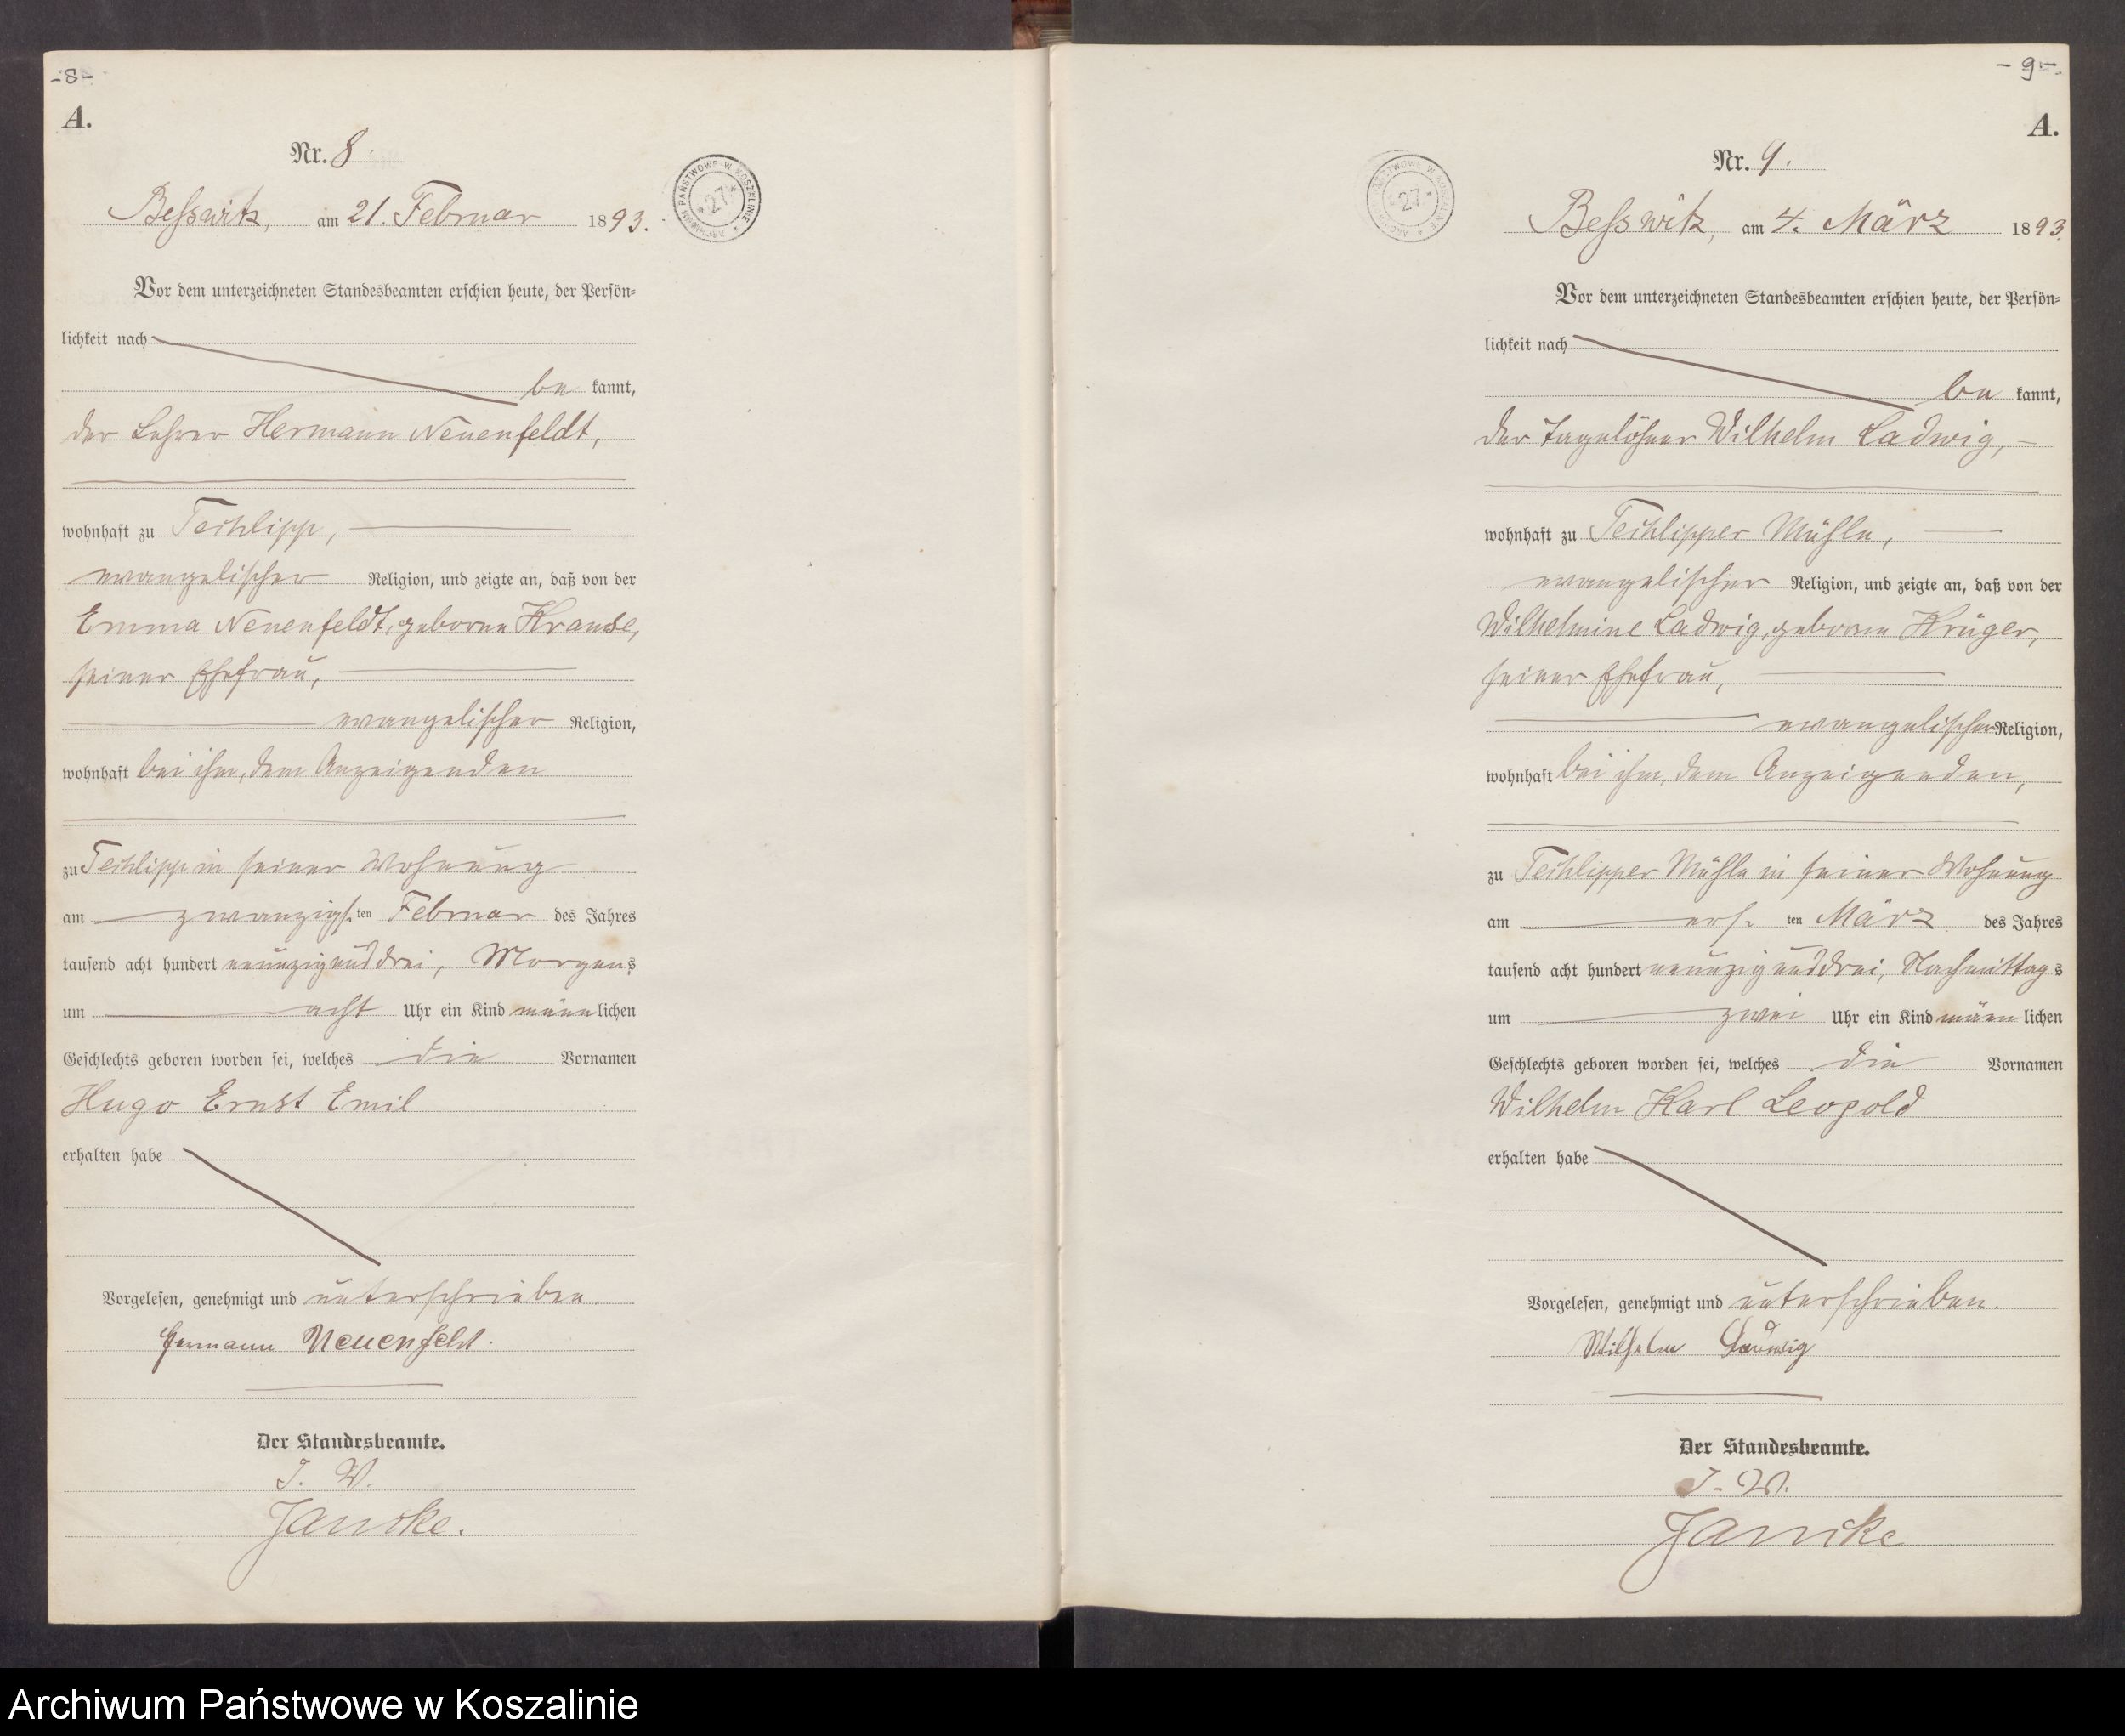 -8-
A.
Nr. 8.
Besswitz, am 21. Februar 1893.
ARCHIWUM PAŃSTWOWE W KOSZALINIE * 27 *
Vor dem unterzeichneten Standesbeamten erschien heute, der Persön-
lichkeit nach
be kannt,
der Lehrer Hermann Neuenfeldt,
wohnhaft zu Techlipp,
evangelischer Religion, und zeigte an, daß von der
Emma Neuenfeldt, geborne Krause,
seiner Ehefrau,
evangelischer Religion,
wohnhaft bei ihm, dem Anzeigenden
zu Techlipp in seiner Wohnung
am zwanzigsten Februar des Jahres
tausend acht hundert neunzig und drei, Morgens
um acht Uhr ein Kind männlichen
Geschlechts geboren worden sei, welches die Vornamen
Hugo Ernst Emil
erhalten habe
Vorgelesen, genehmigt und unterschrieben.
Hermann Neuenfeldt.
Der Standesbeamte.
J. V.
Jancke.
-9-
A.
Nr. 9.
ARCHIWUM PAŃSTWOWE W KOSZALINIE * 27 *
Besswitz, am 4. März 1893.
Vor dem unterzeichneten Standesbeamten erschien heute, der Persön-
lichkeit nach
be kannt,
der Tagelöhner Wilhelm Ladwig,
wohnhaft zu Techlipper Mühle,
evangelischer Religion, und zeigte an, daß von der
Wilhelmine Ladwig, geborne Krüger,
seiner Ehefrau,
evangelischer Religion,
wohnhaft bei ihm, dem Anzeigenden,
zu Techlipper Mühle in seiner Wohnung
am ersten März des Jahres
tausend acht hundert neunzig und drei, Nachmittags
um zwei Uhr ein Kind männlichen
Geschlechts geboren worden sei, welches die Vornamen
Wilhelm Karl Leopold
erhalten habe
Vorgelesen, genehmigt und unterschrieben.
Wilhelm Ladwig
Der Standesbeamte.
J. V.
Jancke
Archiwum Państwowe w Koszalinie